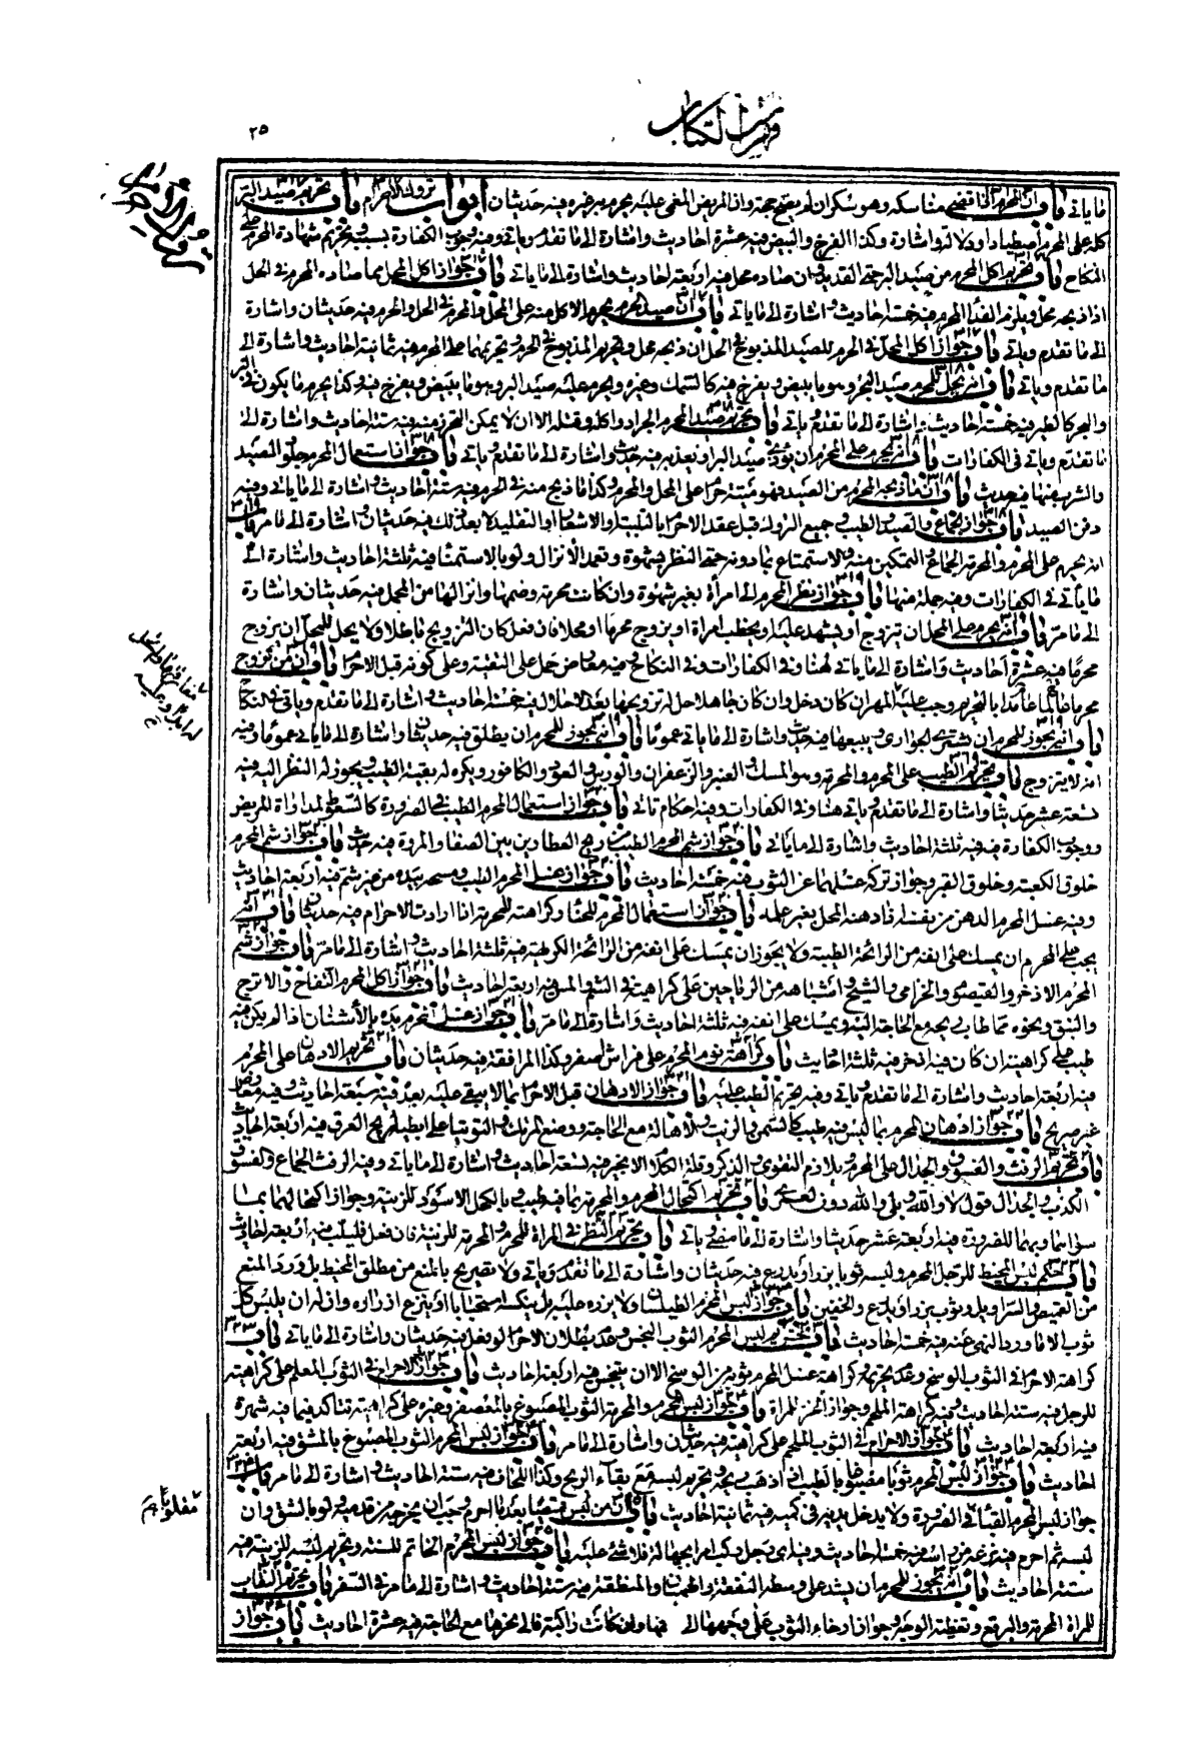 فهرست الكتاب
٢٥
ما ياتى باب ان المحرم اذا قضى مناسكه وهو سكران لم يصح حجه وان المريض المغمى عليه يحرم به غيره فيه حديثان ابواب تروك الاحرام باب تحريم صيد البر
كله على المحرم اصطيادا ودلالة واشارة وكذا الفرخ والبيض فيه عشرة احاديث واشارة الى ما تقدم وياتى وفيه وجوب الكفارة بسببه وتحريم شهادة المحرم على
النكاح باب تحريم اكل المحرم من صيد البر حتى القديد وان صاده محل فيه اربعة احاديث واشارة الى ما ياتى باب جواز اكل المحل مما صاده المحرم فى الحل
اذا ذبحه محل ويلزم الفداء المحرم فيه خمسة احاديث واشارة الى ما ياتى باب ان صيد الحرم يحرم الاكل منه على المحل والمحرم فى الحل والحرم فيه حديثان واشارة
الى ما تقدم وياتى باب جواز اكل المحل فى الحرم للصيد المذبوح فى الحل ان ذبحه محل وتحريم المذبوح فى الحرم وتحريمهما على المحرم فيه ثمانية احاديث واشارة الى
ما تقدم وياتى باب انه يحل للمحرم صيد البحر وهو ما يبيض ويفرخ فيه كالسمك وغيره ويحرم عليه صيد البر وهو ما يبيض ويفرخ فيه وكذا يحرم ما يكون فى البر
والبحر كالطير فيه خمسة احاديث واشارة الى ما تقدم وياتى باب تحريم صيد المحرم الجراد واكله وقتله الا ان لا يمكن التحرز منه فيه ستة احاديث واشارة الى
ما تقدم وياتى فى الكفارات باب انه يحرم على المحرم ان يؤذى صيد البر او يعذبه فيه حديث واشارة الى ما تقدم وياتى باب جواز استعمال المحرم جلود الصيد
والشرب فيها فيه حديث باب ان ما ذبحه المحرم من الصيد فهو ميتة حرام على المحل والمحرم وكذا ما ذبح منه فى الحرم فيه ستة احاديث واشارة الى ما ياتى وفيه
دفن الصيد باب جواز الجماع والصيد والطيب وجميع التروك قبل عقد الاحرام بالتلبية او الاشعار او التقليد لا بعد ذلك فيه حديثان واشارة الى ما مر باب
انه يحرم على المحرم والمحرمة الجماع والتمكين منه والاستمتاع بما دونه حتى النظر بشهوة وتعمد الانزال ولو بالاستمناء فيه ثلثة احاديث واشارة الى
ما ياتى فى الكفارات وفيه جملة منها باب جواز نظر المحرم الى امرأة بغير شهوة وان كانت محرمة وضمها وانزالها من المحمل فيه حديثان واشارة
الى ما مر باب انه يحرم على المحرم ان يتزوج او يشهد عليه او يخطب امراة او يزوج محرما او محلا فان فعل كان التزويج باطلا ولا يحل للمحل ان يزوج
محرما فيه عشرة احاديث واشارة الى ما ياتى هنا وفى الكفارات وفى النكاح فيه معارض حمل على التقية وعلى كونه قبل الاحرام باب ان من تزوج
محرما عالما عامدا بالتحريم وجب عليه المهر ان كان دخل وان كان جاهلا حل له تزويجها بعد الاحلال فيه خمسة احاديث واشارة الى ما تقدم وياتى فى النكاح
باب انه يجوز للمحرم ان يشترى الجوارى ويبيعها فيه حديث واشارة الى ما ياتى عموما باب انه يجوز للمحرم ان يطلق فيه حديثان واشارة الى ما ياتى عموما وفيه
انه لا يتزوج باب تحريم الطيب على المحرم والمحرمة وهو المسك والعنبر والزعفران والورس والعود والكافور ويكره له بقية الطيب ويجوز له النظر اليه فيه
تسعة عشر حديثا واشارة الى ما تقدم وياتى هنا وفى الكفارات وفيه احكام تاتى باب جواز استعمال المحرم الطيب فى الضرورة كالسعوط لمداواة المريض
ووجوب الكفارة فيه فيه ثلثة احاديث واشارة الى ما ياتى باب جواز شم المحرم الطيب من ريح العطارين بين الصفا والمروة فيه حديث باب جواز شم المحرم
خلوق الكعبة وخلوق القبر وجواز تركه غسلهما عن الثوب فيه خمسة احاديث باب جواز غسل المحرم الطيب ومسحه بيده من غير شم فيه اربعة احاديث
وفيه غسل المحرم الدهن من بدنه اذا دهنه المحل بغير علمه باب جواز استعمال المحرم للحناء وكراهته للمحرمة اذا ارادت الاحرام فيه حديثان باب انه
يجب على المحرم ان يمسك على انفه من الرائحة الطيبة ولا يجوز ان يمسك على انفه من الرائحة الكريهة فيه ثلثة احاديث واشارة الى ما مر باب جواز شم
المحرم الاذخر والقيصوم والخزامى والشيح واشباهه من الرياحين على كراهية فى الشم والمس فيه اربعة احاديث باب جواز اكل المحرم التفاح والاترج
والنبق ونحوه مما طاب ريحه مع الحاجة اليه ويمسك على انفه فيه ثلثة احاديث واشارة الى ما مر باب جواز غسل المحرم يده بالاشنان اذا لم يكن فيه
طيب على كراهية ان كان فيه اذخر فيه ثلثة احاديث باب كراهة نوم المحرم على فراش اصفر وكذا المرفقة فيه حديثان باب تحريم الادهان على المحرم
فيه اربعة احاديث واشارة الى ما تقدم وياتى وفيه تحريم الطيب عليه باب جواز الادهان قبل الاحرام بما لا يبقى عليه بعد فيه سبعة احاديث وفيه معارض
غير صريح باب جواز ادهان المحرم بما ليس فيه طيب كالسمن والزيت والاهالة مع الحاجة ووضع المرتك والتوتيا على ابطيه لريح العرق فيه اربعة احاديث
باب تحريم الرفث والفسوق والجدال على المحرم ويلازم التقوى والذكر وقلة الكلام الا بخير فيه تسعة احاديث واشارة الى ما ياتى وفيه الرفث الجماع والفسوق
الكذب والجدال قول لا والله وبلى والله دون لعمرى باب تحريم اكتحال المحرم والمحرمة بما فيه طيب وبالكحل الاسود للزينة وجواز اكتحالهما بما
سواهما وبهما للضرورة فيه اربعة عشر حديثا واشارة الى ما مضى وياتى باب تحريم النظر فى المرآة للمحرم والمحرمة للزينة فان فعل فليلب فيه اربعة احاديث
باب حكم لبس المخيط للرجل المحرم ولبسه ثوبا يزر او يدرع فيه حديثان واشارة الى ما تقدم وياتى ولا تصريح بالمنع من مطلق المخيط بل ورد المنع
من القميص والسراويل وثوب يزر او يدرع والخفين باب جواز لبس المحرم الطيلسان ولا يزره عليه بل ينكسه استحبابا او ينزع ازراره وان له ان يلبس كل
ثوب الا ما ورد النهى عنه فيه خمسة احاديث باب تحريم لبس المحرم الثوب النجس وعدم بطلان الاحرام لو فعل فيه حديثان واشارة الى ما ياتى باب
كراهة الاحرام فى الثوب الوسخ وعدم تحريمه وكراهة غسل المحرم ثوبه من الوسخ الا ان يتنجس فيه اربعة احاديث باب جواز الاحرام فى الثوب المعلم على كراهية
للرجل فيه ستة احاديث وفيه كراهة الملحم وجواز الخز للمراة باب جواز لبس المحرم والمحرمة الثوب المصبوغ بالعصفر وغيره على كراهية تتاكد فيما فيه شهرة
فيه اربعة احاديث باب جواز الاحرام فى الثوب الملحم على كراهية فيه حديثان واشارة الى ما مر باب جواز لبس المحرم الثوب المصبوغ بالمشق فيه اربعة
احاديث باب جواز لبس المحرم ثوبا مصبوغا بالطيب اذا ذهب ريحه وتحريم لبسه مع بقاء الريح وكذا اللحاف فيه ستة احاديث واشارة الى ما مر باب
جواز لبس المحرم القباء فى الضرورة ولا يدخل يديه فى كميه فيه ثمانية احاديث باب ان من لبس قميصا بعد ما احرم وجب ان يخرجه من قدميه ولو بالشق وان
لبسه ثم احرم فيه نزعه من راسه فيه خمسة احاديث وفيه اى رجل ركب امرا بجهالة فلا شىء عليه باب جواز لبس المحرم الخاتم للسنة وتحريم لبسه للزينة فيه
ستة احاديث باب انه يجوز للمحرم ان يشد على وسطه النفقة والهميان والمنطقة فيه ستة احاديث واشارة الى ما مر فى السفر باب تحريم النقاب
للمراة المحرمة والبرقع وتغطية الوجه وجواز ارخاء الثوب على وجهها الى فمها وان كانت راكبة فالى نحرها مع الحاجة فيه عشرة احاديث باب جواز